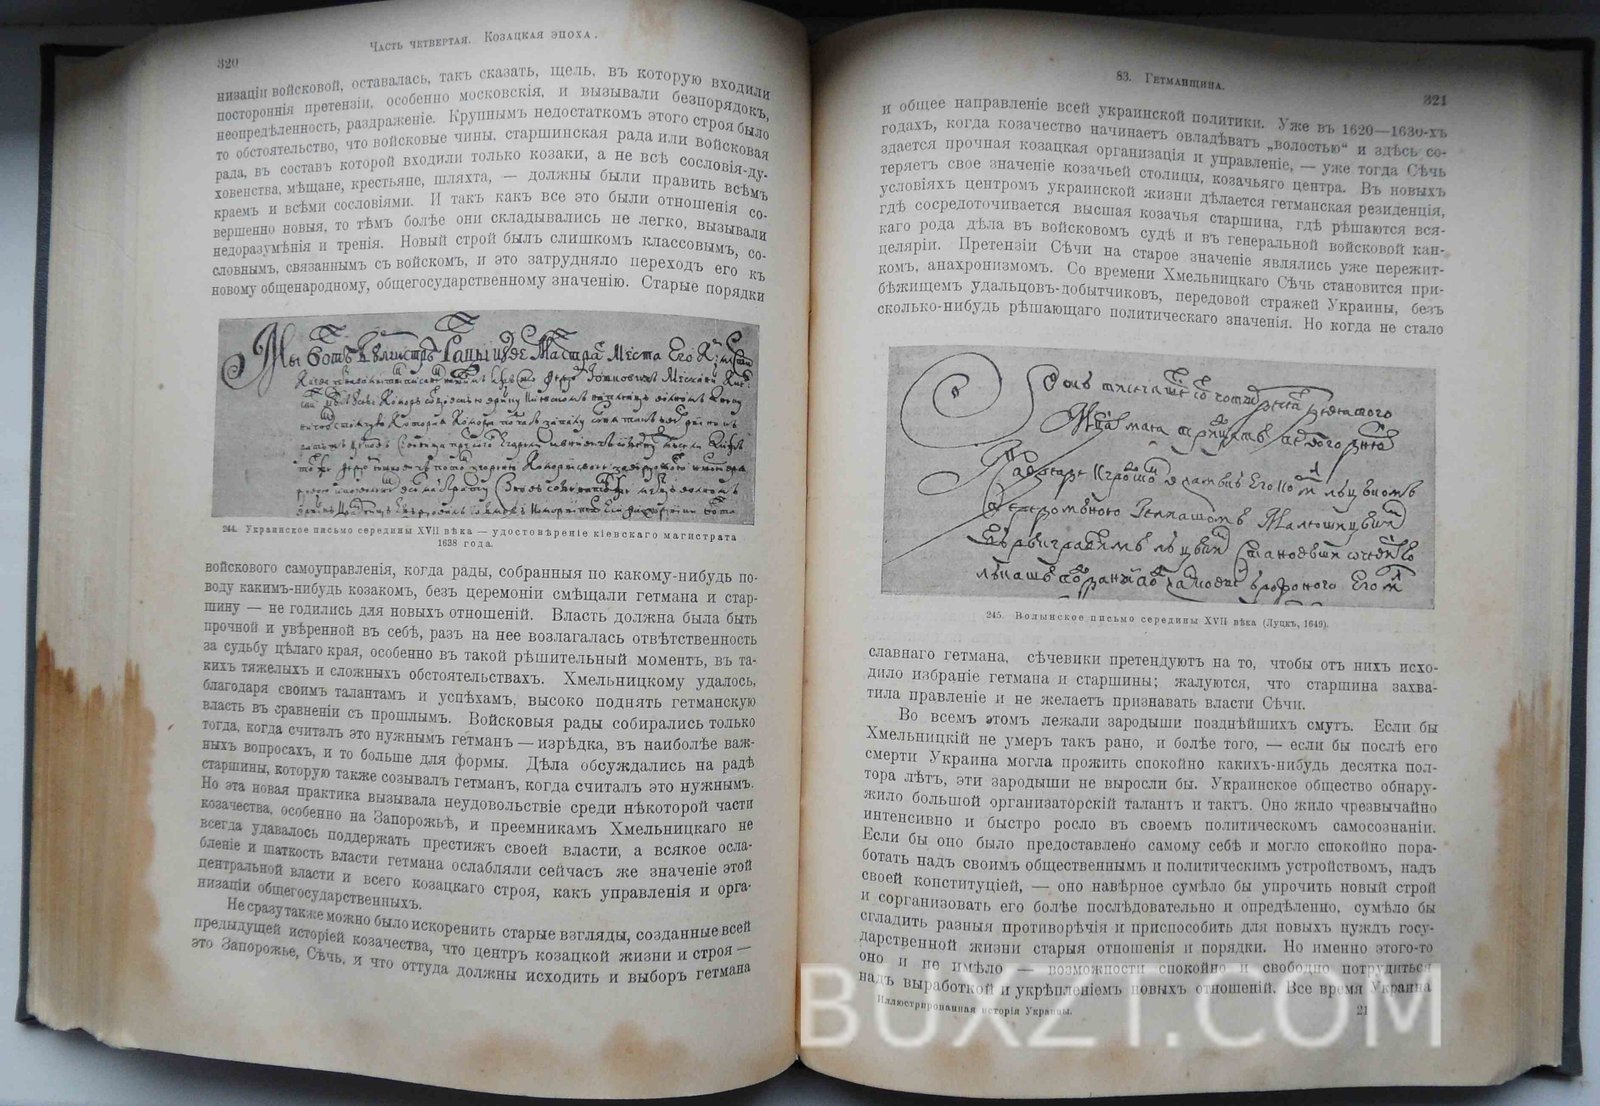 320
Часть четвертая. Козацкая эпоха.
низаціи войсковой, оставалась, такъ сказать, щель, въ которую входили
посторонніа претензіи, особенно московскія, и вызывали безпорядокъ,
неопредѣленность, раздраженіе. Крупнымъ недостаткомъ этого строя было
то обстоятельство, что войсковые чины, старшинская рада или войсковая
рада, въ составъ которой входили только козаки, а не всѣ сословія-ду-
ховенства, мѣщане, крестьяне, шляхта, — должны были править всѣмъ
краемъ и всѣми сословіями. И такъ какъ все это были отношенія со-
вершенно новыя, то тѣмъ болѣе они складывались не легко, вызывали
недоразумѣнія и тренія. Новый строй былъ слишкомъ классовымъ, со-
словнымъ, связаннымъ съ войскомъ, и это затрудняло переходъ его къ
новому общенародному, общегосударственному значенію. Старые порядки
244. Украинское письмо середины XVII вѣка — удостовѣреніе кіевскаго магистрата
1638 года.
войскового самоуправленія, когда рады, собранныя по какому-нибудь по-
воду какимъ-нибудь козакомъ, безъ церемоніи смѣщали гетмана и стар-
шину — не годились для новыхъ отношеній. Власть должна была быть
прочной и увѣренной въ себѣ, разъ на нее возлагалась отвѣтственность
за судьбу цѣлаго края, особенно въ такой рѣшительный моментъ, въ та-
кихъ тяжелыхъ и сложныхъ обстоятельствахъ. Хмельницкому удалось,
благодаря своимъ талантамъ и успѣхамъ, высоко поднять гетманскую
власть въ сравненіи съ прошлымъ. Войсковыя рады собирались только
тогда, когда считалъ это нужнымъ гетманъ — изрѣдка, въ наиболѣе важ-
ныхъ вопросахъ, и то больше для формы. Дѣла обсуждались на радѣ
старшины, которую также созывалъ гетманъ, когда считалъ это нужнымъ.
Но эта новая практика вызывала неудовольствіе среди нѣкоторой части
козачества, особенно на Запорожьѣ, и преемникамъ Хмельницкаго не
всегда удавалось поддержать престижъ своей власти, а всякое осла-
бленіе и шаткость власти гетмана ослабляли сейчасъ же значеніе этой
центральной власти и всего козацкаго строя, какъ управленія и орга-
низаціи общегосударственныхъ.
Не сразу также можно было искоренить старые взгляды, созданные всей
предыдущей исторіей козачества, что центръ козацкой жизни и строя —
это Запорожье, Сѣчь, и что оттуда должны исходить и выборъ гетмана
83. Гетманщина.
321
и общее направленіе всей украинской политики. Уже въ 1620—1630-хъ
годахъ, когда козачество начинаетъ овладѣвать „волостью“ и здѣсь со-
здается прочная козацкая организація и управленіе, — уже тогда Сѣчь
теряетъ свое значеніе козачьей столицы, козачьяго центра. Въ новыхъ
условіяхъ центромъ украинской жизни дѣлается гетманская резиденція,
гдѣ сосредоточивается высшая козачья старшина, гдѣ рѣшаются вся-
каго рода дѣла въ войсковомъ судѣ и въ генеральной войсковой кан-
целяріи. Претензіи Сѣчи на старое значеніе являлись уже пережит-
комъ, анахронизмомъ. Со времени Хмельницкаго Сѣчь становится при-
бѣжищемъ удальцовъ-добытчиковъ, передовой стражей Украины, безъ
сколько-нибудь рѣшающаго политическаго значенія. Но когда не стало
245. Волынское письмо середины XVII вѣка (Луцкъ, 1649).
славнаго гетмана, сѣчевики претендуютъ на то, чтобы отъ нихъ исхо-
дило избраніе гетмана и старшины; жалуются, что старшина захва-
тила правленіе и не желаетъ признавать власти Сѣчи.
Во всемъ этомъ лежали зародыши позднѣйшихъ смутъ. Если бы
Хмельницкій не умеръ такъ рано, и болѣе того, — если бы послѣ его
смерти Украина могла прожить спокойно какихъ-нибудь десятка пол-
тора лѣтъ, эти зародыши не выросли бы. Украинское общество обнару-
жило большой организаторскій талантъ и тактъ. Оно жило чрезвычайно
интенсивно и быстро росло въ своемъ политическомъ самосознаніи.
Если бы оно было предоставлено самому себѣ и могло спокойно пора-
ботать надъ своимъ общественнымъ и политическимъ устройствомъ, надъ
своей конституціей, — оно навѣрное сумѣло бы упрочить новый строй
и сорганизовать его болѣе послѣдовательно и опредѣленно, сумѣло бы
сгладить разныя противорѣчія и приспособить для новыхъ нуждъ госу-
дарственной жизни старыя отношенія и порядки. Но именно этого-то
оно и не имѣло — возможности спокойно и свободно потрудиться
надъ выработкой и укрѣпленіемъ новыхъ отношеній. Все время Украина
Иллюстрированная исторія Украины.
21
BUXZ1.COM